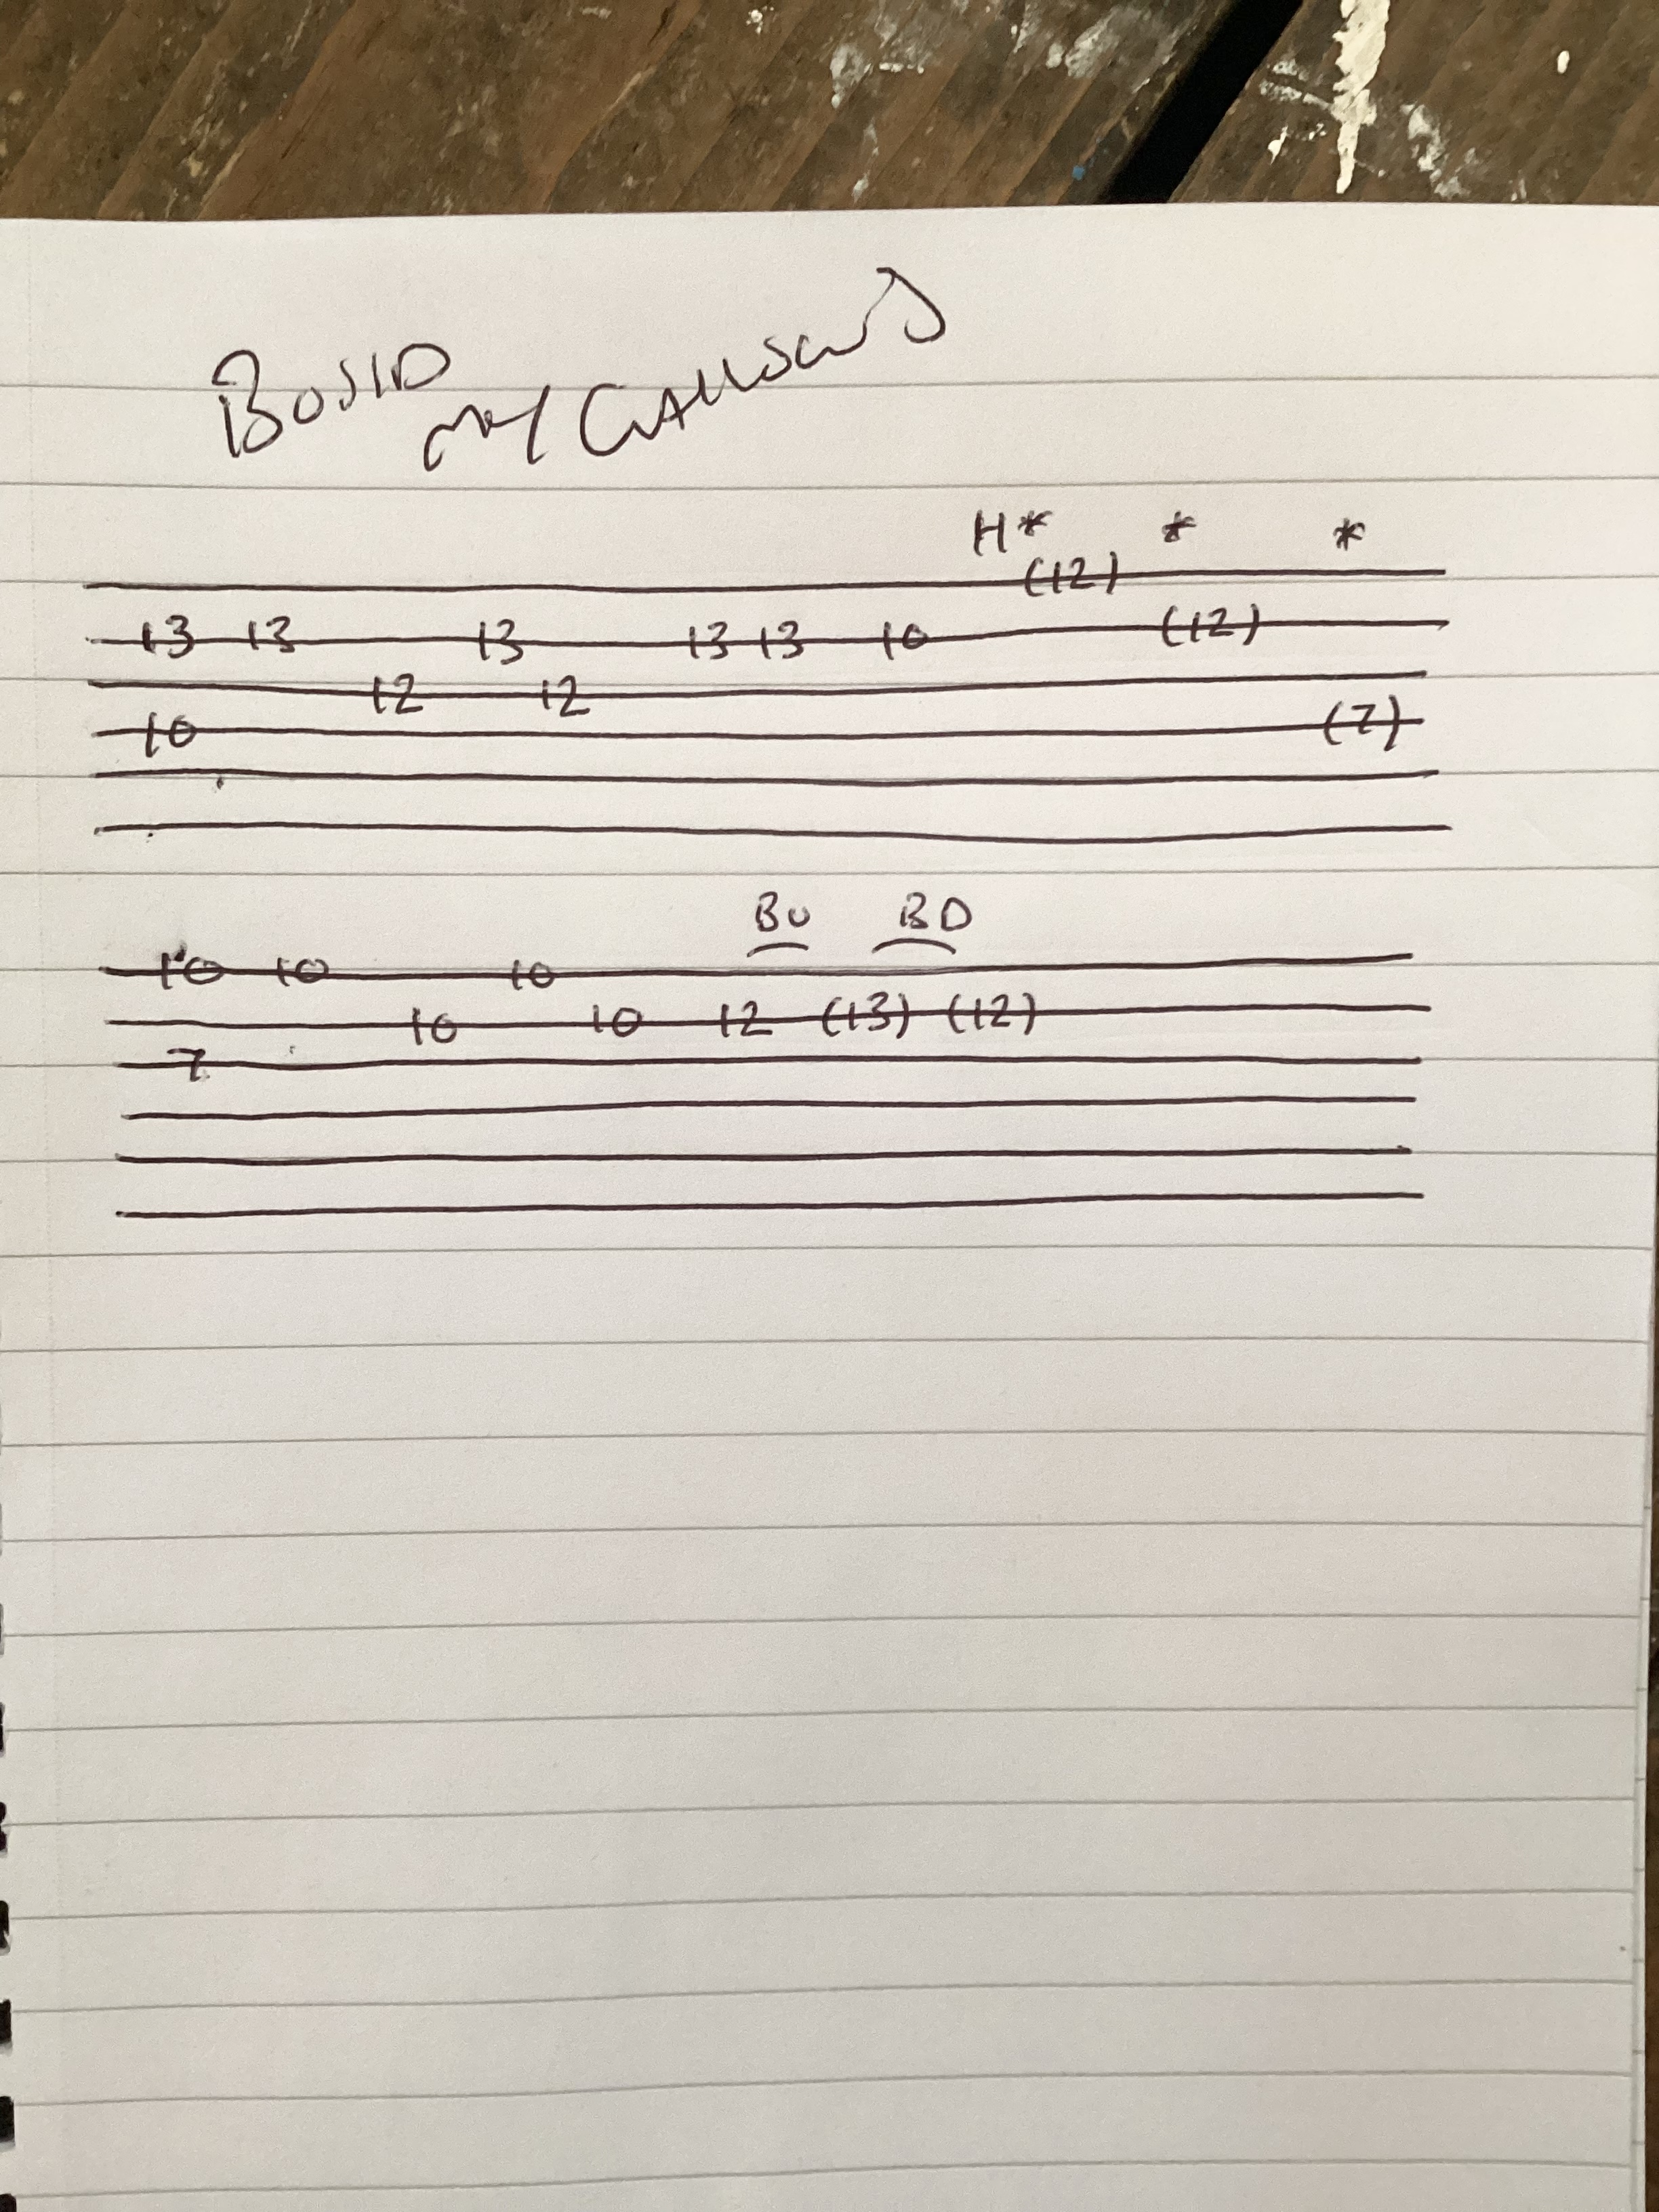 BUILD
MY GALLOWS
H* * *
(12)
13 13 13 13 13 10 (12)
12 12
10 (7)
BU BD
10 10 10
10 10 12 (13) (12)
7